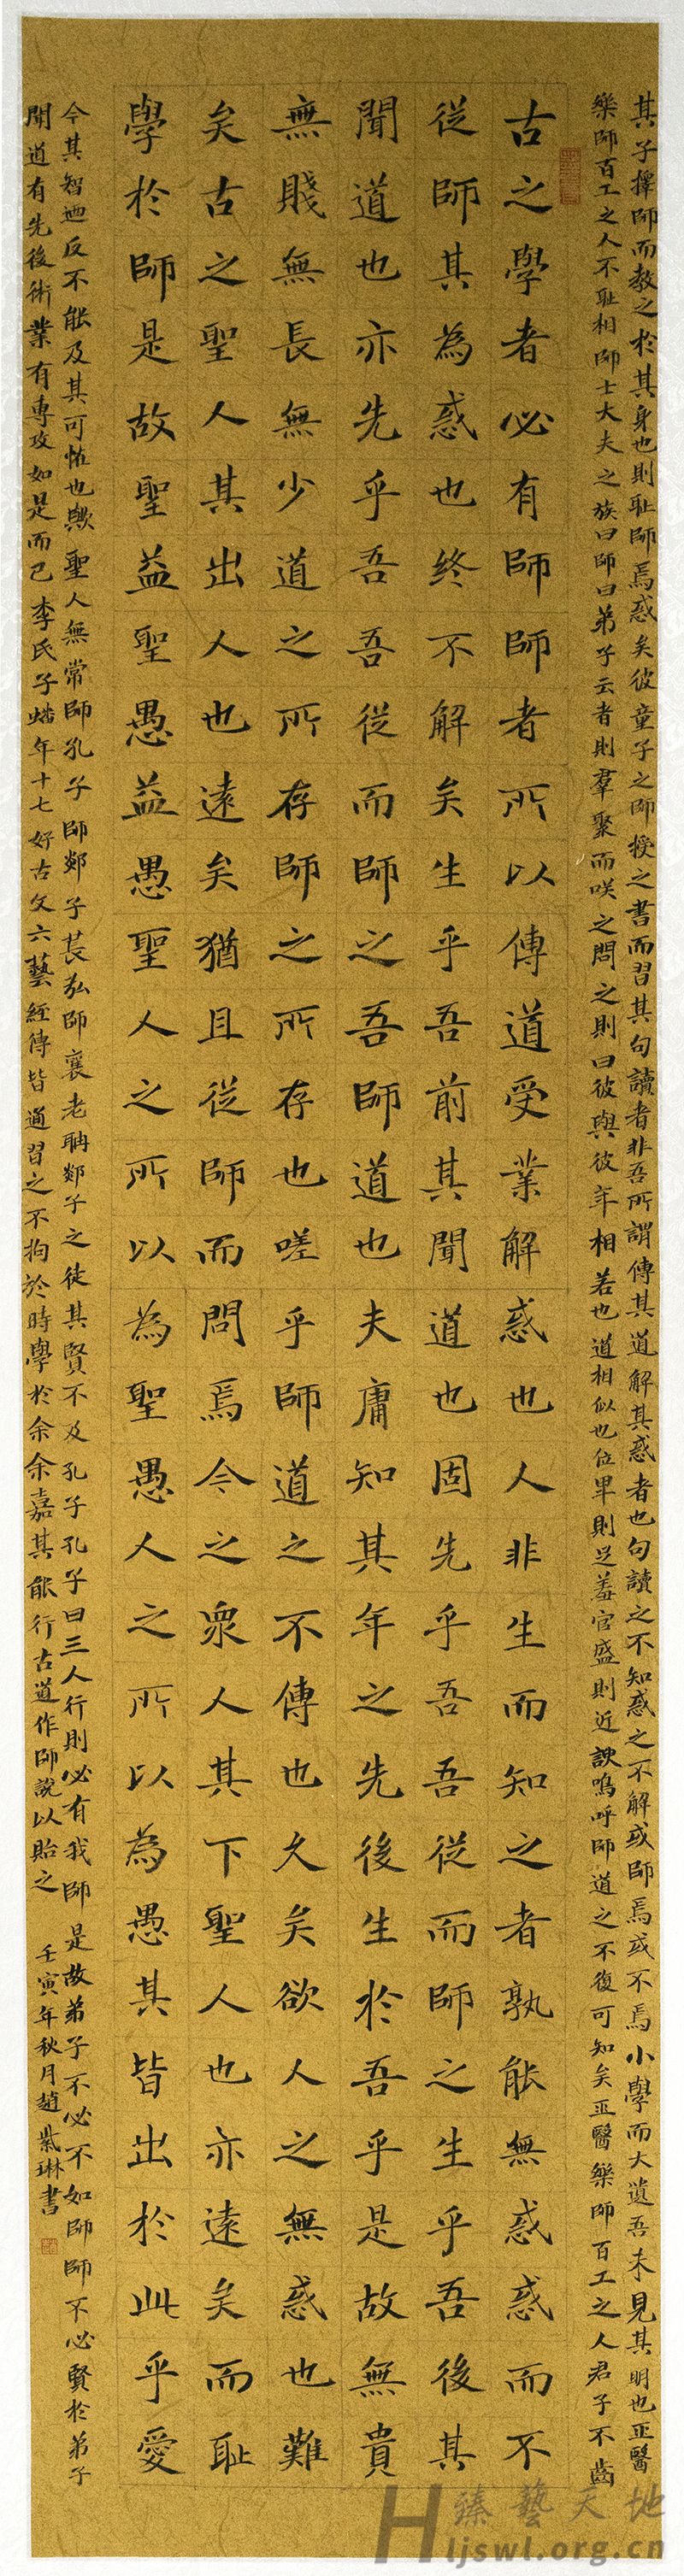 古之學者必有師師者所以傳道受業解惑也人非生而知之者孰能無惑惑而不
從師其為惑也終不解矣生乎吾前其聞道也固先乎吾吾從而師之生乎吾後其
聞道也亦先乎吾吾從而師之吾師道也夫庸知其年之先後生於吾乎是故無貴
無賤無長無少道之所存師之所存也嗟乎師道之不傳也久矣欲人之無惑也難
矣古之聖人其出人也遠矣猶且從師而問焉今之眾人其下聖人也亦遠矣而耻
學於師是故聖益聖愚益愚聖人之所以為聖愚人之所以為愚其皆出於此乎愛
其子擇師而教之於其身也則耻師焉惑矣彼童子之師授之書而習其句讀者非吾所謂傳其道解其惑者也句讀之不知惑之不解或師焉或不焉小學而大遺吾未見其明也巫醫
樂師百工之人不耻相師士大夫之族曰師曰弟子云者則羣聚而咲之問之則曰彼與彼年相若也道相似也位卑則足羞官盛則近諛嗚呼師道之不復可知矣巫醫樂師百工之人君子不齒
今其智迺反不能及其可怪也歟聖人無常師孔子師郯子萇弘師襄老聃郯子之徒其賢不及孔子孔子曰三人行則必有我師是故弟子不必不如師師不必賢於弟子
聞道有先後術業有專攻如是而已李氏子蟠年十七好古文六藝經傳皆通習之不拘於時學於余余嘉其能行古道作師說以貽之
壬寅年秋月趙紫琳書
臻藝天地
Hljswl.org.cn